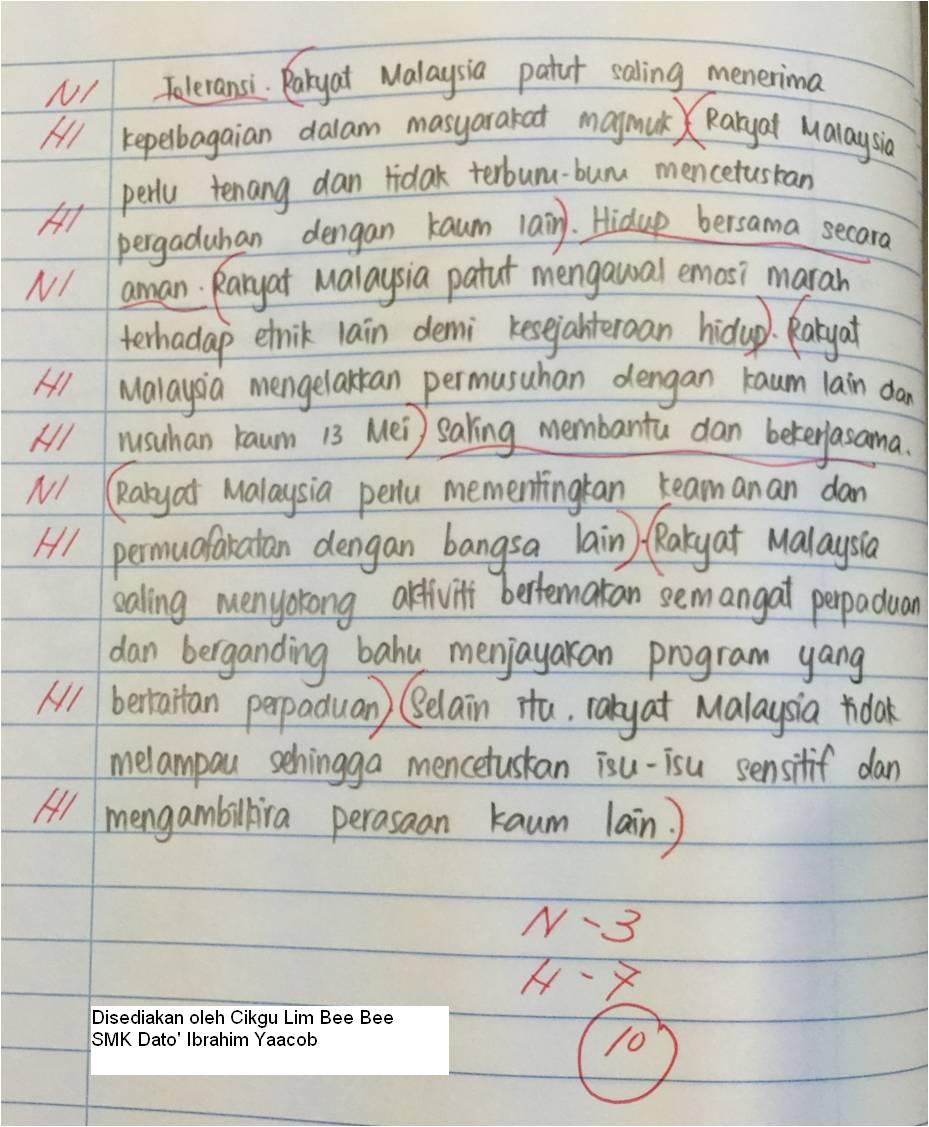 N1 Toleransi. (Rakyat Malaysia patut saling menerima
H1 kepelbagaian dalam masyarakat majmuk)(Rakyat Malaysia
perlu tenang dan tidak terburu-buru mencetuskan
H1 pergaduhan dengan kaum lain). Hidup bersama secara
N1 aman. (Rakyat Malaysia patut mengawal emosi marah
terhadap etnik lain demi kesejahteraan hidup). (Rakyat
H1 Malaysia mengelakkan permusuhan dengan kaum lain dan
H1 rusuhan kaum 13 Mei) Saling membantu dan bekerjasama.
N1 (Rakyat Malaysia perlu mementingkan keamanan dan
H1 permuafakatan dengan bangsa lain).(Rakyat Malaysia
saling menyokong aktiviti bertemakan semangat perpaduan
dan berganding bahu menjayakan program yang
H1 berkaitan perpaduan)(Selain itu, rakyat Malaysia tidak
melampau sehingga mencetuskan isu-isu sensitif dan
H1 mengambilkira perasaan kaum lain.)
N - 3
H - 7
10
Disediakan oleh Cikgu Lim Bee Bee
SMK Dato' Ibrahim Yaacob